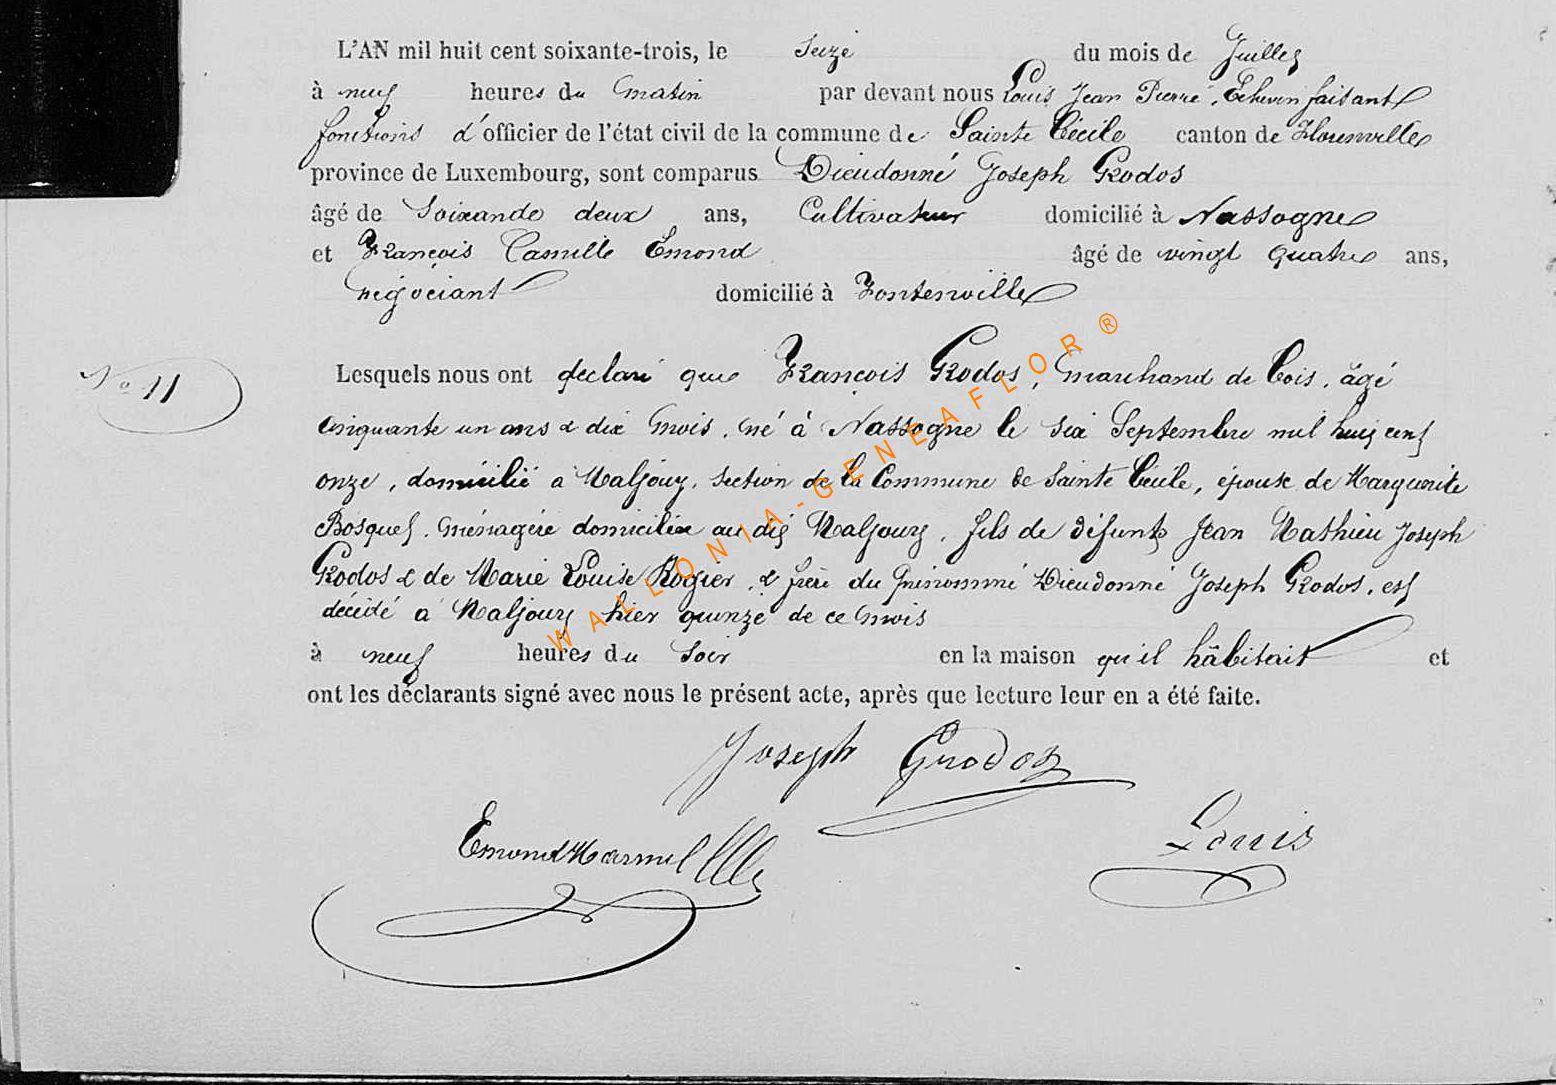 L'AN mil huit cent soixante-trois, le Seize du mois de Juillet
à neuf heures du matin par devant nous Louis Jean Pierre, Echevin faisant
fonctions d'officier de l'état civil de la commune de Sainte Cécile canton de Florenville
province de Luxembourg, sont comparus Dieudonné Joseph Grodos
âgé de Soixande deux ans, Cultivateur domicilié à Nassogne
et François Camille Emond âgé de vingt quatre ans,
négociant domicilié à Fontenoille
Nº 11
Lesquels nous ont déclaré que François Grodos, Marchand de bois, âgé
cinquante un ans & dix mois, né à Nassogne le six Septembre mil huit cent
onze, domicilié à Maljouy, section de la Commune de Sainte Cécile, époux de Marguerite
Bosquet, ménagère domiciliée au dit Maljouy, fils de défunts Jean Mathieu Joseph
Grodos & de Marie Louise Rogier, & frère du prénommé Dieudonné Joseph Grodos, est
décédé à Maljouy hier quinze de ce mois
à neuf heures du soir en la maison qu'il hâbitait et
ont les déclarants signé avec nous le présent acte, après que lecture leur en a été faite.
Joseph Grodos
Emond
Louis
WALLONIA-GENEAFLOR ®